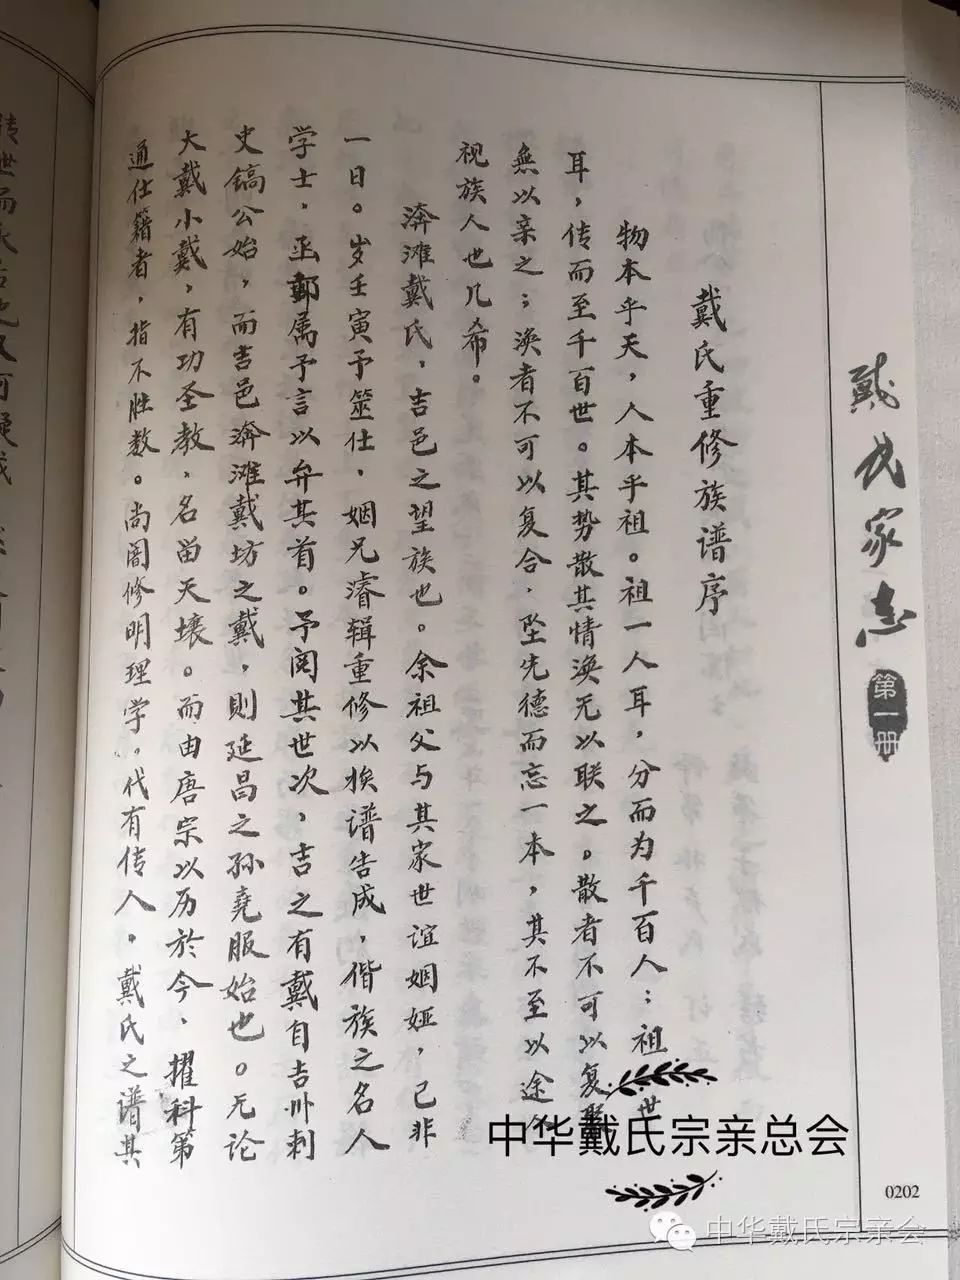 戴氏家志
第一册
戴氏重修族谱序
物本乎天，人本乎祖。祖一人耳，分而为千百人；祖世
耳，传而至千百世。其势散其情涣无以联之。散者不可以复聚
無以亲之；涣者不可以复合．坠先德而忘一本，其不至以途人
视族人也几希。
渀滩戴氏，吉邑之望族也。余祖父与其家世谊姻娅，已非
一日。岁壬寅予筮仕．姻兄濬辑重修以挨谱告成，偕族之名人
学士．亟鄭属予言以弁其首。予阅其世次，吉之有戴自吉州刺
史镐公始，而吉邑渀滩戴坊之戴，则延昌之孙堯服始也。无论
大戴小戴，有功圣教．名畄天壤。而由唐宗以历於今、擢科第
通仕籍者，指不胜数。尚阁修明理学。代有传人。戴氏之谱其
中华戴氏宗亲总会
0202
中华戴氏宗亲会